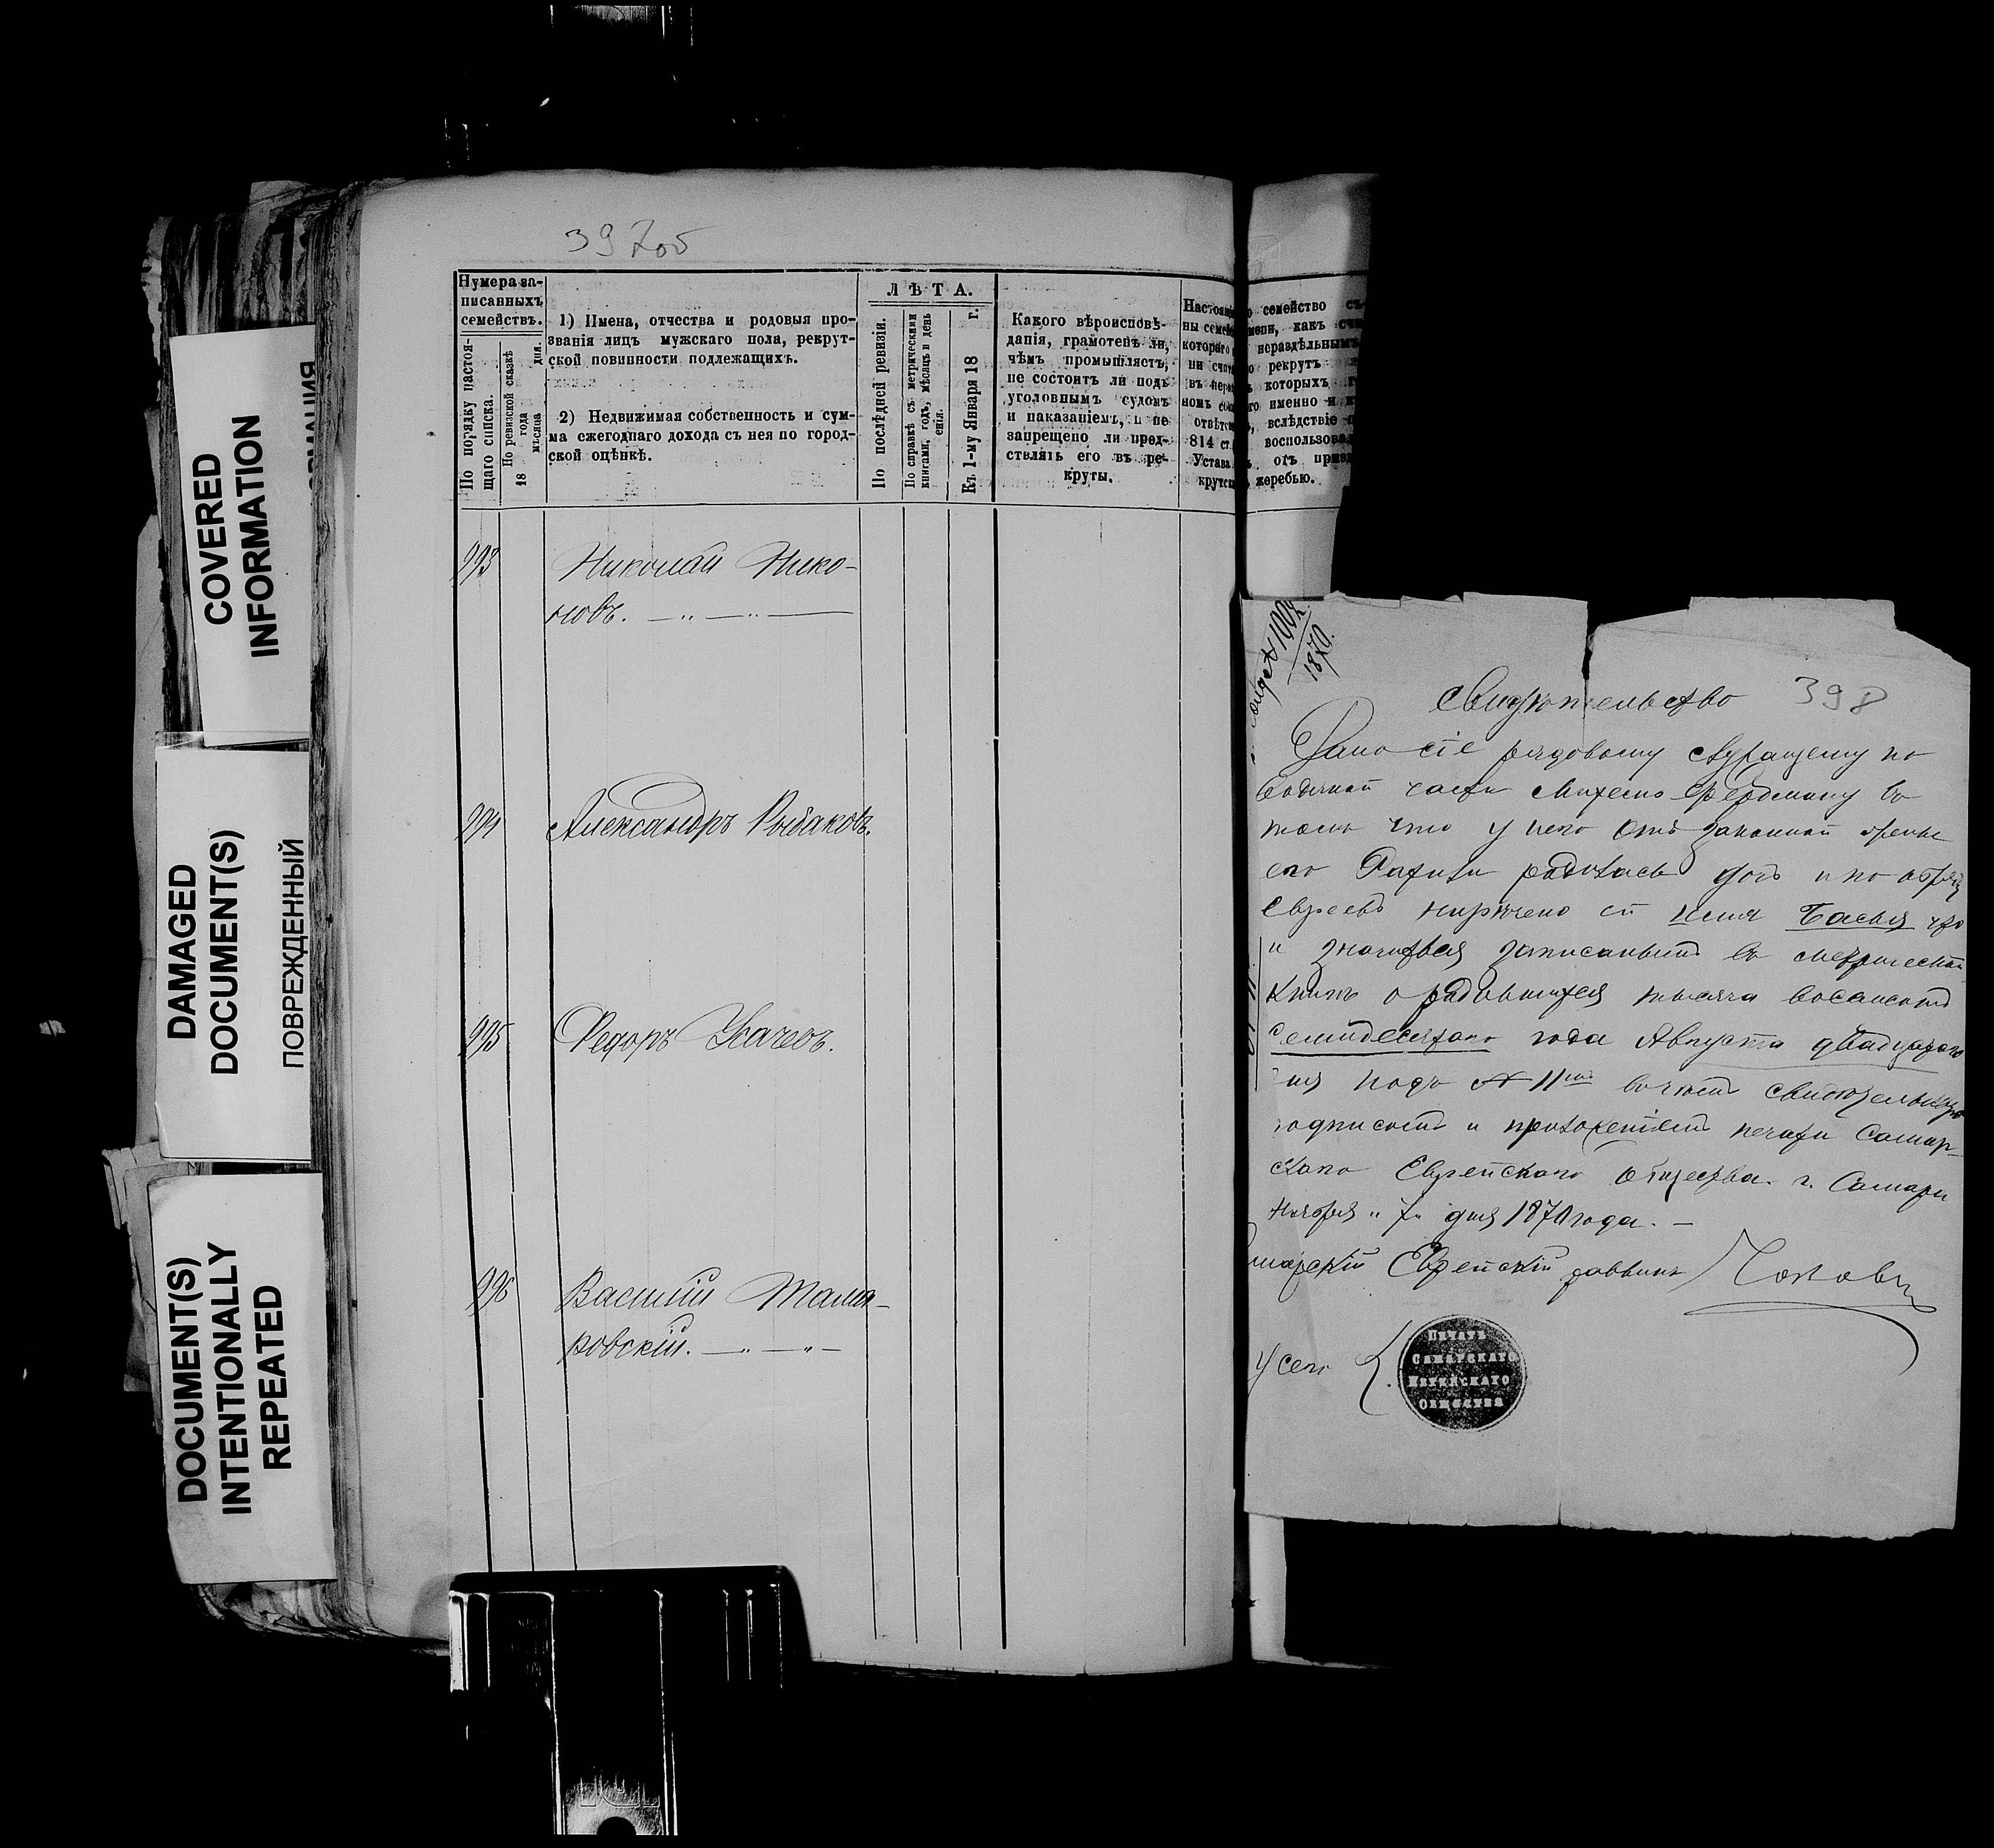 COVERED
INFORMATION
DAMAGED
DOCUMENT(S)
ПОВРЕЖДЕННЫЙ
DOCUMENT(S)
INTENTIONALLY
REPEATED
397об
Нумера за-
писанныхъ
семействъ.
По порядку настоя-
щаго списка.
По ревизской сказкѣ
18 года
мѣсяца дня.
1) Имена, отчества и родовыя про-
званія лицъ мужскаго пола, рекрут-
ской повинности подлежащихъ.
2) Недвижимая собственность и сум-
ма ежегоднаго дохода съ нея по город-
ской оцѣнкѣ.
ЛѢТА.
По послѣдней ревизіи.
По справкѣ съ метрическими
книгами, годъ, мѣсяцъ и день
Къ 1-му Января 18 г.
Какого вѣроисповѣ-
данія, грамотенъ ли,
чѣмъ промышляетъ,
не состоитъ ли подъ
уголовнымъ судомъ
и наказаніемъ, и не
запрещено ли пред-
ствлять его въ ре-
круты.
семейство
какъ
нераздѣльнымъ
рекрутъ
которыхъ
именно и
вслѣдствіе
814 ст. воспользова
Устава отъ
жеребью.
993 Николай Нико-
новъ.
994 Александръ Рыбаковъ.
995 Федоръ Усачевъ.
996 Василій Тома-
ровскій.
1870.
Свидѣтельство 398
Дано сіе рядовому служащему по
части во
томъ что у него отъ законной жены
его родилась дочь и по обряду
евреевъ наречено ей имя Басья что
и значится записаннымъ въ метрической
книгѣ о родившихся тысяча восемсотъ
семидесятаго года Августа двадцатаго
подъ № 11мъ въ чемъ свидѣтельствую
подписомъ и приложеніемъ печати Самар-
скаго Еврейскаго Общества. г. Самара
Ноября „7„ дня 1870 года. —
Еврейскій раввинъ
К.
ПЕЧАТЬ
САМАРСКАГО
ЕВРЕЙСКАГО
ОБЩЕСТВА